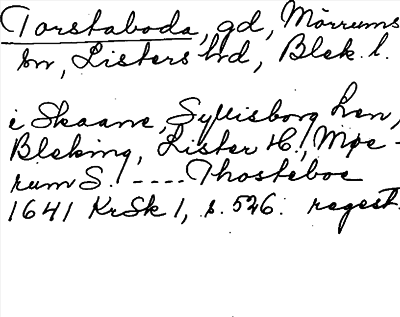 Torstaboda, gd, Mörrums
sn, Listers hd, Blek. l.
i Skaane, Sylvisborg Len,
Bleking, Lister H., Møe-
rum S. ---- Thosteboe
1641 KrSk 1, s. 526. regest.